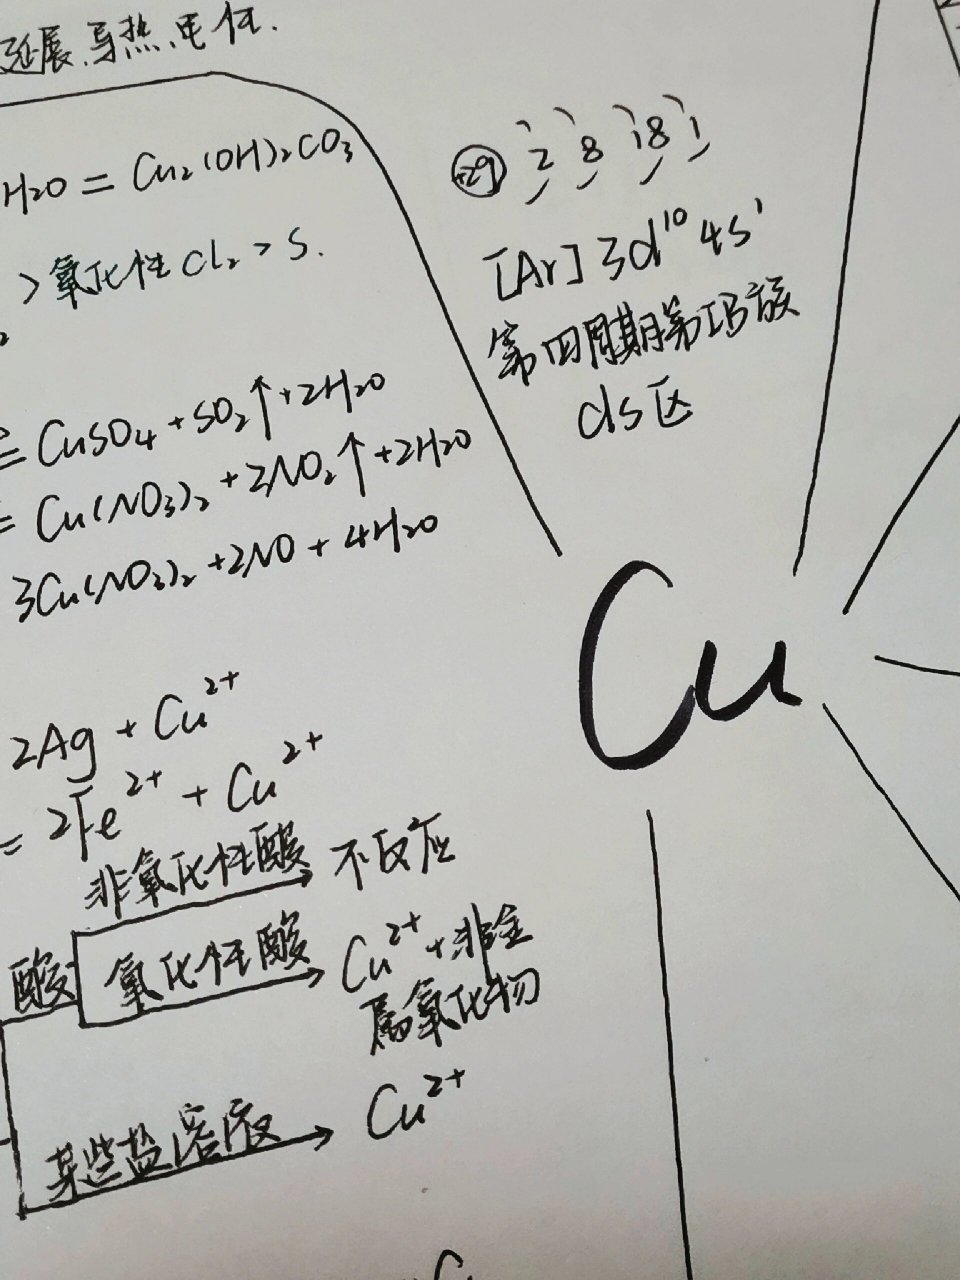 延展.导热.电性.
H₂O = Cu₂(OH)₂CO₃
> 氧化性 Cl₂ > S.
₂
= CuSO₄ + SO₂↑ + 2H₂O
= Cu(NO₃)₂ + 2NO₂↑ + 2H₂O
3Cu(NO₃)₂ + 2NO + 4H₂O
2Ag + Cu²⁺
= 2Fe²⁺ + Cu²⁺
非氧化性酸 不反应
酸 氧化性酸 Cu²⁺ + 非金
属氧化物
某些盐溶液 Cu²⁺
+29 2 8 18 1
[Ar] 3d¹⁰ 4s¹
第四周期第IB族
ds区
Cu